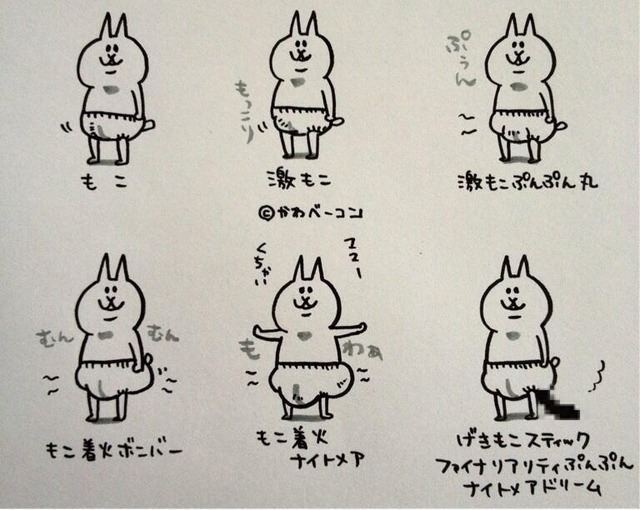 もこ
もっこり
激もこ
ぷぅん
激もこぷんぷん丸
©かわベーコン
むん
むん
もこ着火ボンバー
くちゃい
エエー
も
わぁ
もこ着火
ナイトメア
げきもこスティック
ファイナリアリティぷんぷん
ナイトメアドリーム